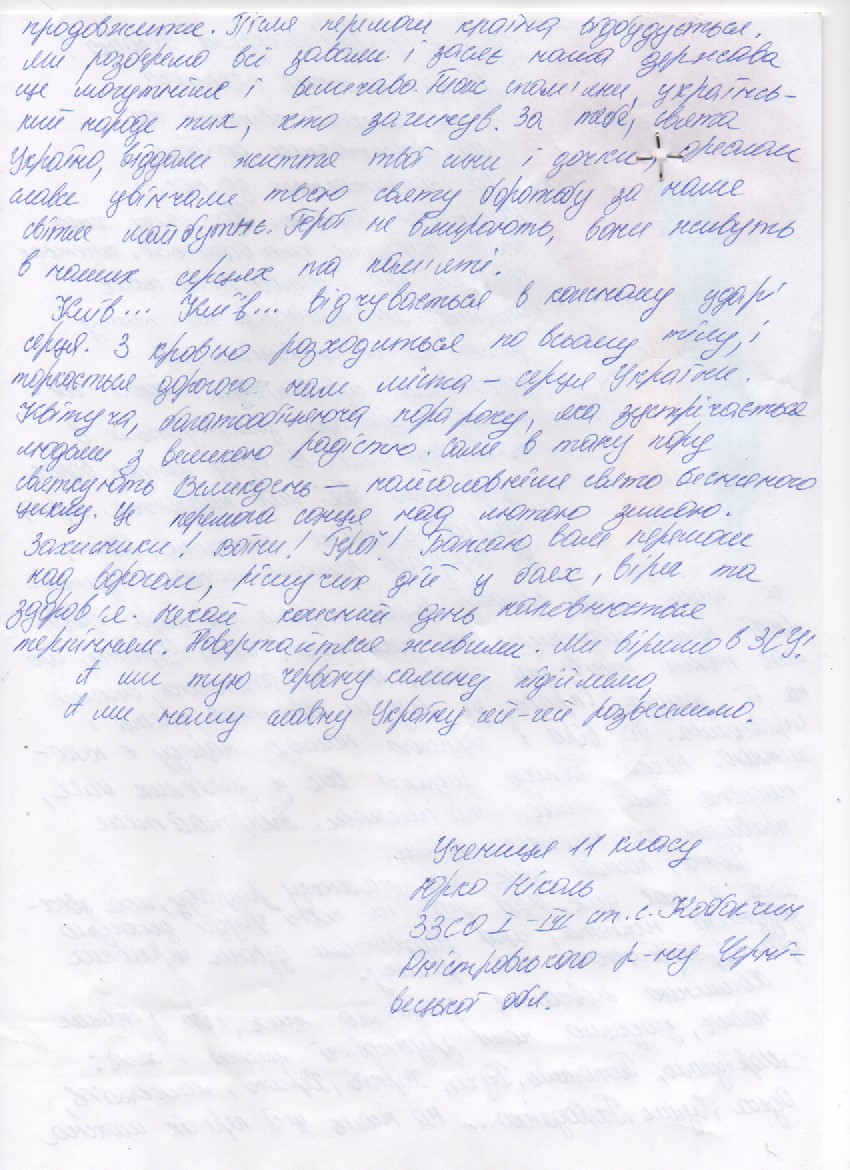 продовжити. Після перемоги країна відбудується.
Ми розберемо всі завали і засяє наша держава
ще могутніше і величаво. Тож пом'яни, українсь-
кий народе тих, хто загинув. За тебе, свята
Україно, віддали життя твої сини і дочки, ореолом
слави увінчали твою святу боротьбу за наше
світле майбутнє. Герої не вмирають, вони живуть
в наших серцях та пам'яті.
Київ... Київ... відчувається в кожному ударі
серця. З кров'ю розходиться по всьому тілу, і
торкається дорогого нам міста – серця України.
Квітуча, багатообіцяюча пора року, яка зустрічається
людьми з великою радістю. Саме в таку пору
святкують Великдень – найголовніше свято весняного
циклу. Це перемога сонця над лютою зимою.
Захисники! Воїни! Герої! Бажаю вам перемоги
над ворогом, рішучих дій у боях, віри та
здоров'я. Нехай кожний день наповнюється
терпінням. Повертайтеся живими. Ми віримо в ЗСУ!
А ми тую червону калину підіймемо,
А ми нашу славну Україну гей-гей розвеселимо.
Учениця 11 класу
Юрко Ніколь
ЗЗСО І – ІІІ ст. с. Коболчин
Дністровського р-ну Черні-
вецької обл.